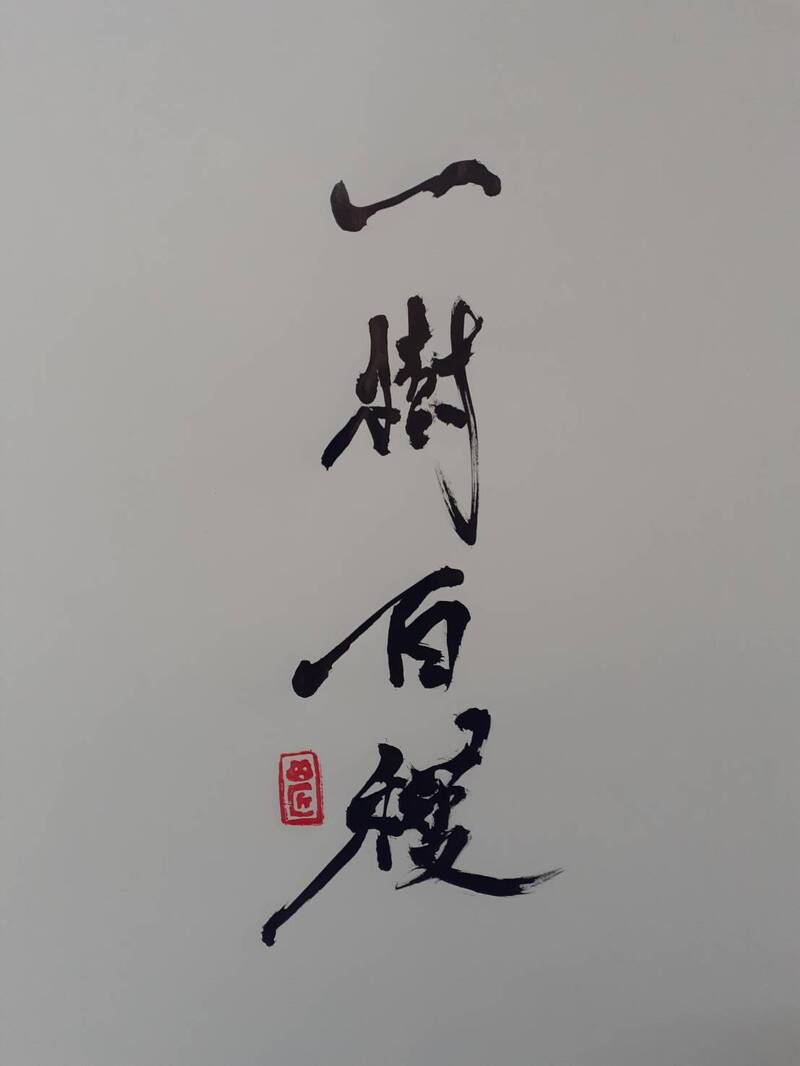 一樹百穫
匠